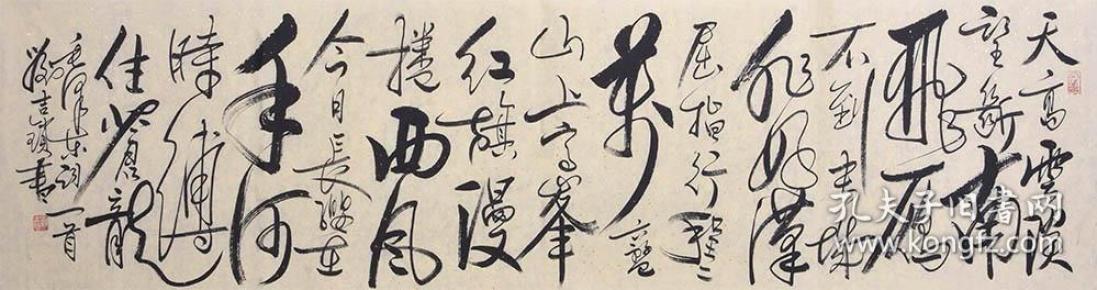 天高雲淡
望斷南
飛雁
不到長城
非好漢
屈指行程二
萬六盤
山上高峯
紅旗漫
捲西風
今日長纓在
手何
時縛
住蒼龍
毛澤東詞一首
書
孔夫子旧书网
www.kongfz.com